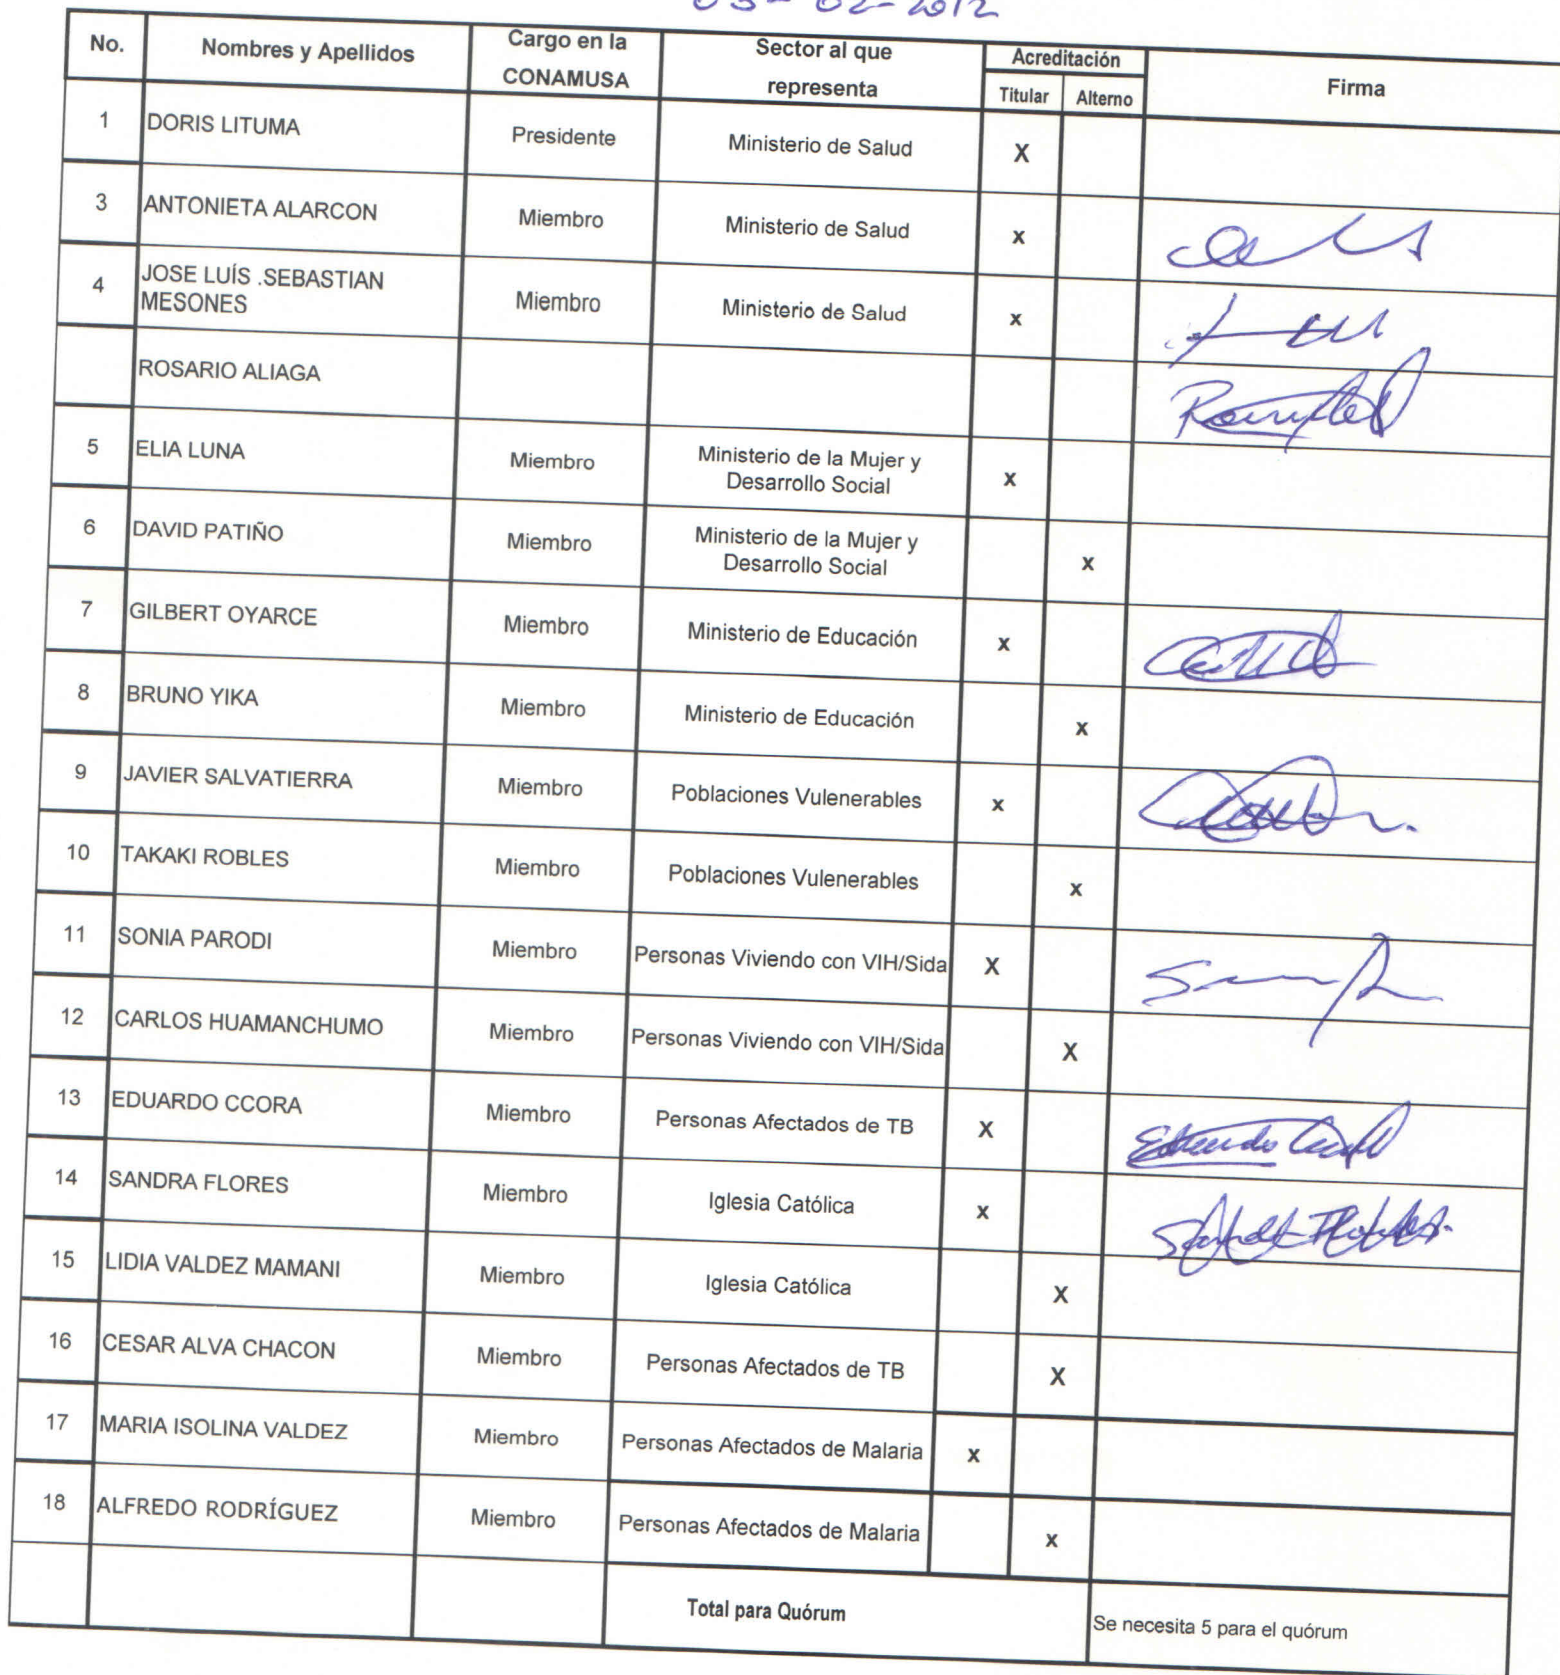 03-02-2012
No. Nombres y Apellidos Cargo en la CONAMUSA Sector al que representa Acreditación Titular Alterno Firma
1 DORIS LITUMA Presidente Ministerio de Salud X
3 ANTONIETA ALARCON Miembro Ministerio de Salud x
4 JOSE LUÍS .SEBASTIAN MESONES Miembro Ministerio de Salud x
ROSARIO ALIAGA
5 ELIA LUNA Miembro Ministerio de la Mujer y Desarrollo Social x
6 DAVID PATIÑO Miembro Ministerio de la Mujer y Desarrollo Social x
7 GILBERT OYARCE Miembro Ministerio de Educación x
8 BRUNO YIKA Miembro Ministerio de Educación x
9 JAVIER SALVATIERRA Miembro Poblaciones Vulenerables x
10 TAKAKI ROBLES Miembro Poblaciones Vulenerables x
11 SONIA PARODI Miembro Personas Viviendo con VIH/Sida X
12 CARLOS HUAMANCHUMO Miembro Personas Viviendo con VIH/Sida X
13 EDUARDO CCORA Miembro Personas Afectados de TB X
14 SANDRA FLORES Miembro Iglesia Católica x
15 LIDIA VALDEZ MAMANI Miembro Iglesia Católica X
16 CESAR ALVA CHACON Miembro Personas Afectados de TB X
17 MARIA ISOLINA VALDEZ Miembro Personas Afectados de Malaria x
18 ALFREDO RODRÍGUEZ Miembro Personas Afectados de Malaria x
Total para Quórum Se necesita 5 para el quórum